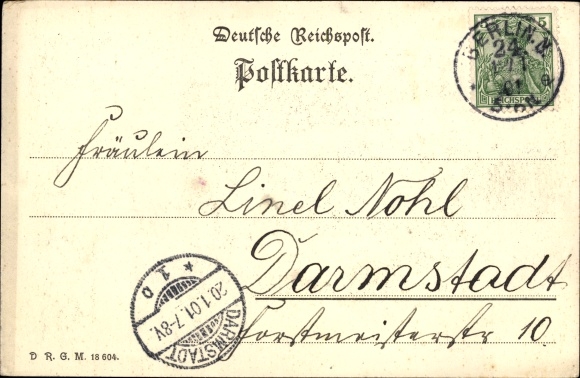 Deutsche Reichspost.
Postkarte.
5
REICHSPOST
BERLIN N
24
01
Fräulein
Linel Nohl
Darmstadt
Forstmeisterstr 10
DARMSTADT
20.1.01.7-8V.
* 1 a
D. R. G. M. 18 604.